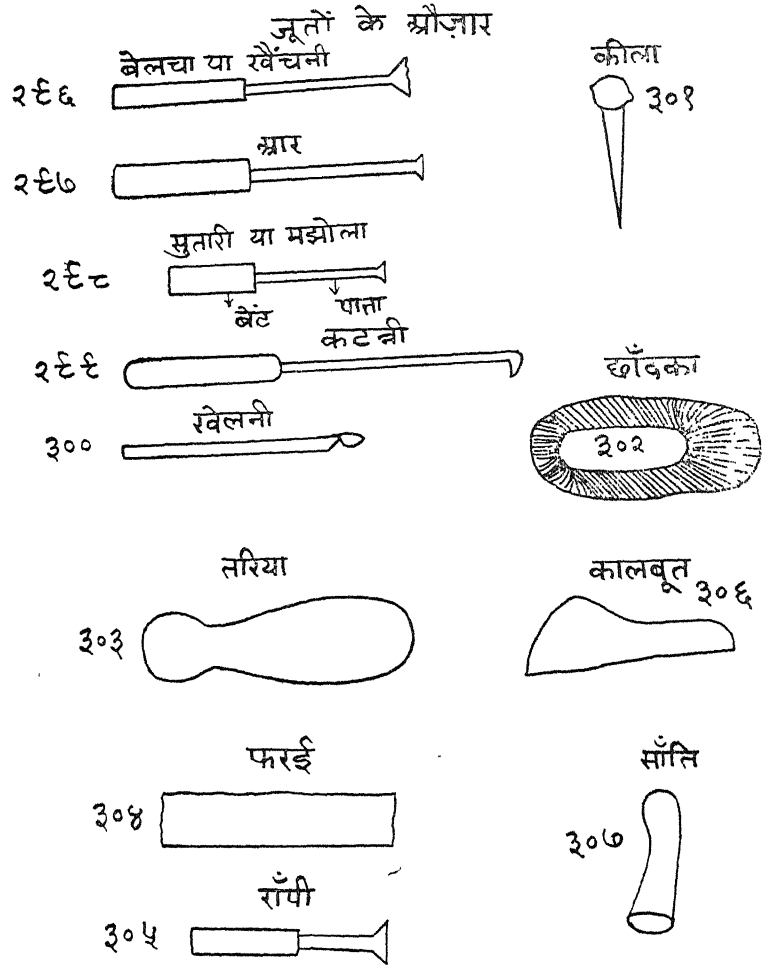 जूतों के औज़ार
बेलचा या खैंचनी
२९६
आर
२९७
सुतारी या मझोला
२९८
बेंट
पात्ता
कटन्नी
२९९
खेलनी
३००
कीला
३०१
छाँदका
३०२
तरिया
३०३
कालबूत
३०६
फरई
३०४
साँति
३०७
राँपी
३०५